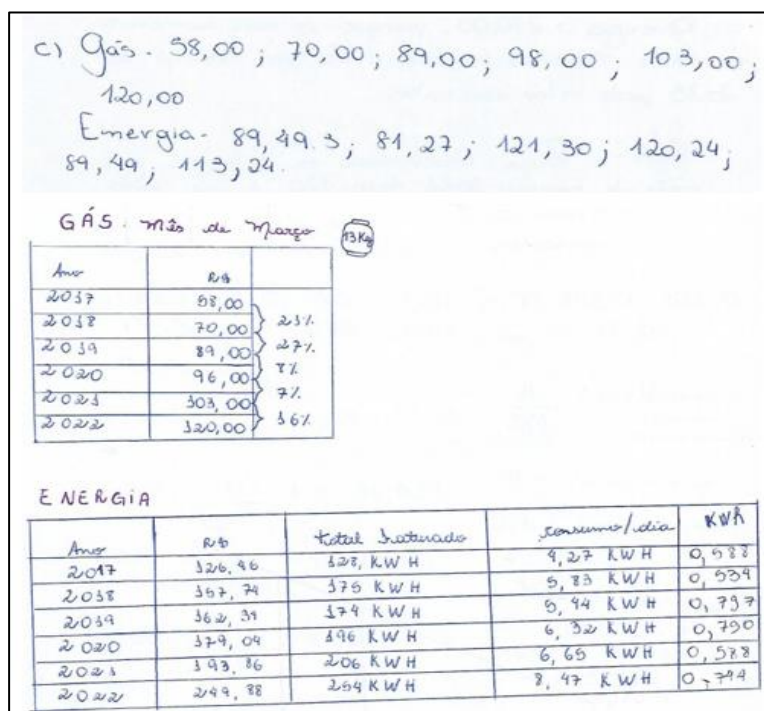 c) Gás. 58,00 ; 70,00 ; 89,00 ; 98,00 ; 103,00 ;
120,00
Energia - 89,49.3 ; 81,27 ; 121,30 ; 120,24 ;
89,49 ; 113,24.
GÁS: mês de Março 13Kg
Ano R$
2017 58,00
2018 70,00 21%
2019 89,00 27%
2020 96,00 8%
2021 103,00 7%
2022 120,00 16%
ENERGIA
Ano R$ total faturado consumo/dia KWh
2017 126,96 128, KWH 4,27 KWH 0,588
2018 157,74 175 KWH 5,83 KWH 0,539
2019 162,31 174 KWH 5,44 KWH 0,797
2020 179,04 196 KWH 6,32 KWH 0,790
2021 193,86 206 KWH 6,65 KWH 0,588
2022 249,88 254 KWH 8,47 KWH 0,794